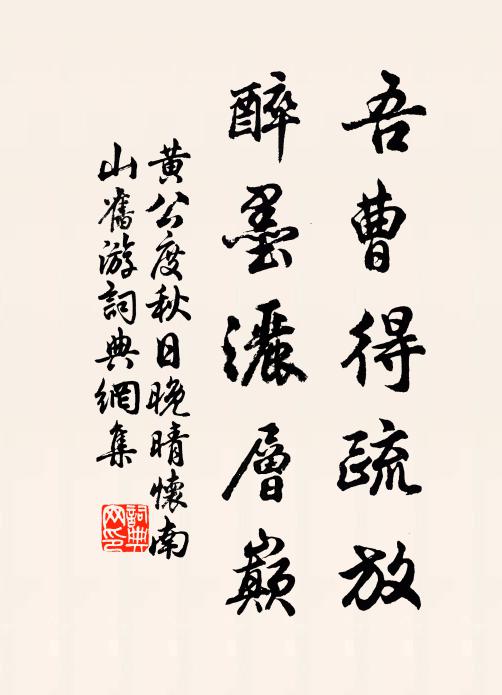 吾曹得疏放
醉墨灑層巔
黄公度秋日晚晴懷南
山舊游詞典網集
詞典
网印